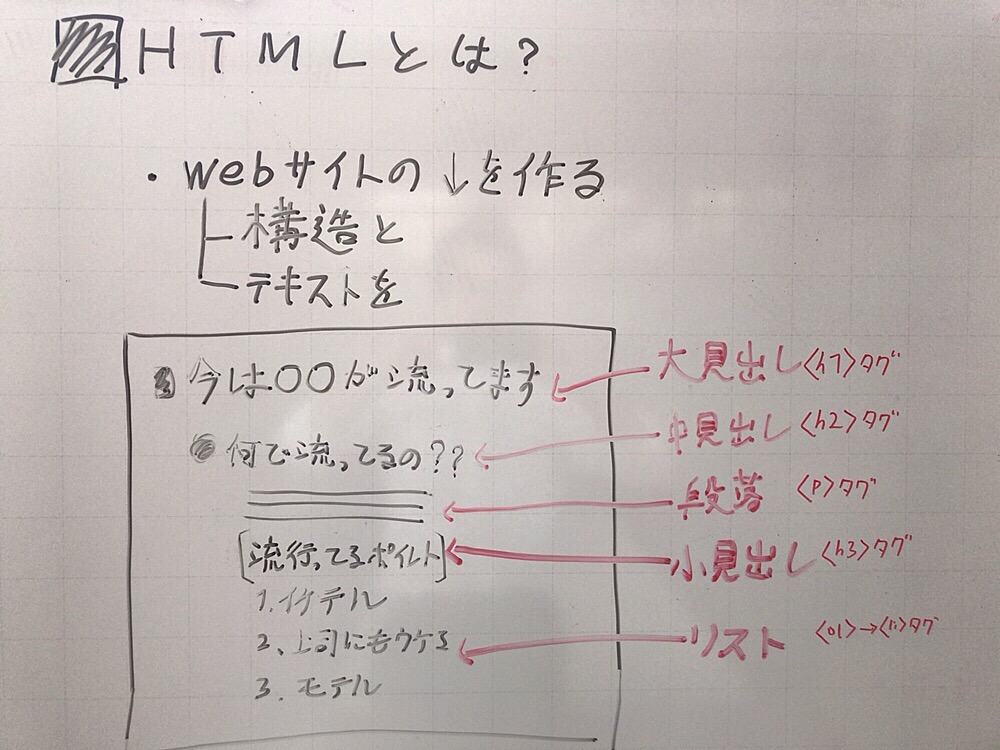 HTMLとは?
・webサイトの↓を作る
構造と
テキストを
今は〇〇が流ってます
大見出し <h1>タグ
何で流ってるの??
中見出し <h2>タグ
段落 <P>タグ
[流行ってるポイント]
小見出し <h3>タグ
1.イケテル
2、上司にもウケる
リスト <ol>→<li>タグ
3. モテル